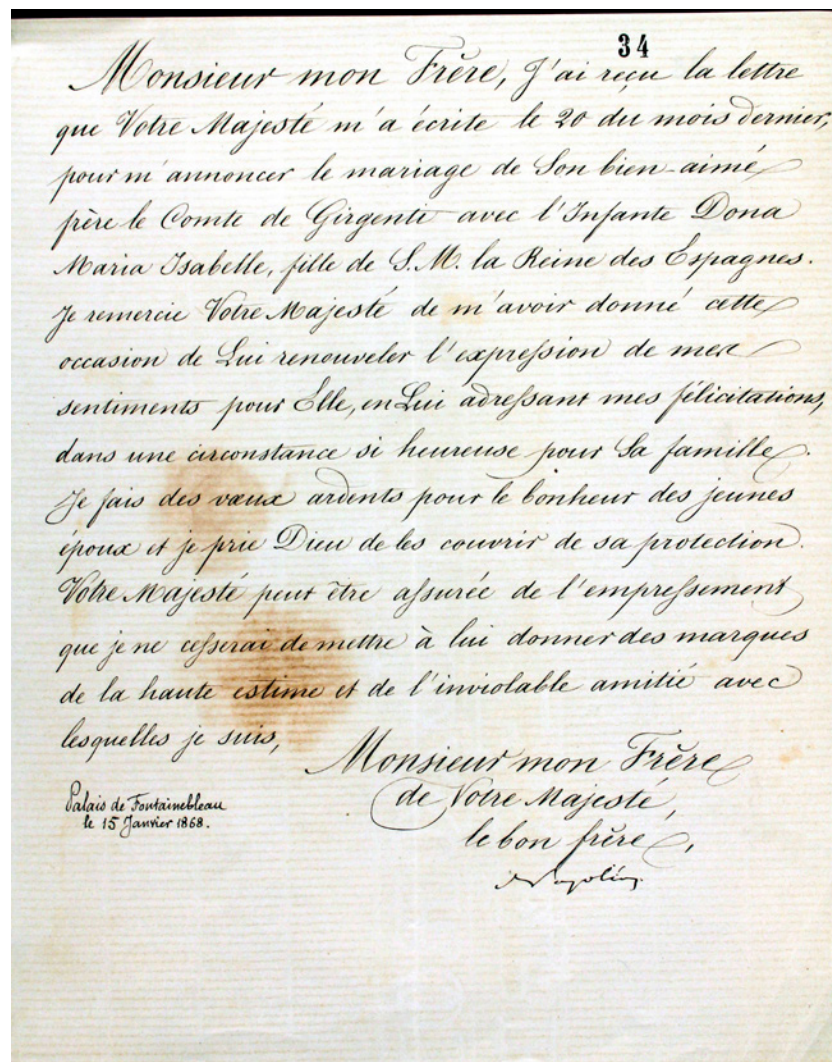 34
Monsieur mon Frère, J'ai reçu la lettre
que Votre Majesté m'a écrite le 20 du mois dernier,
pour m'annoncer le mariage de Son bien-aimé
frère le Comte de Girgenti avec l'Infante Dona
Maria Isabelle, fille de S. M. la Reine des Espagnes.
Je remercie Votre Majesté de m'avoir donné cette
occasion de Lui renouveler l'expression de mes
sentiments pour Elle, en Lui adressant mes félicitations,
dans une circonstance si heureuse pour Sa famille.
Je fais des vœux ardents pour le bonheur des jeunes
époux et je prie Dieu de les couvrir de sa protection.
Votre Majesté peut être assurée de l'empressement
que je ne cesserai de mettre à lui donner des marques
de la haute estime et de l'inviolable amitié avec
lesquelles je suis,
Monsieur mon Frère
de Votre Majesté,
le bon frère,
Napoléon
Palais de Fontainebleau
le 15 Janvier 1868.